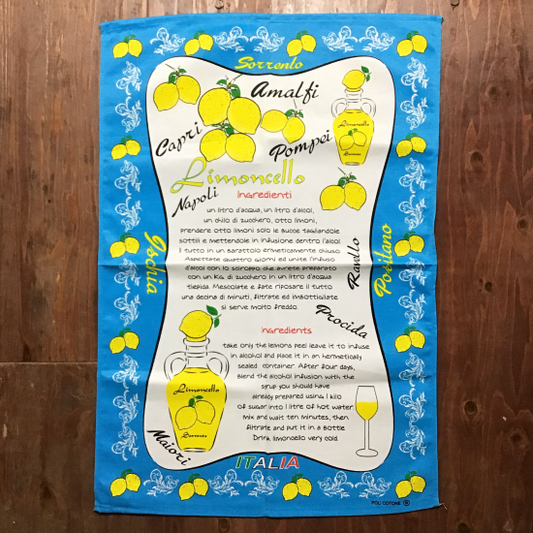 Sorrento
Amalfi
Capri
Pompei
Limoncello
Sorrento
Limoncello
Napoli
Ingredienti
un litro d'acqua, un litro d'alcol,
un chilo di zucchero, otto limoni,
prendere otto limoni solo le bucce tagliandole
sottili e mettendole in infusione dentro l'alcol
il tutto in un barattolo ermeticamente chiuso.
Aspettate quattro giorni ed unite l'infuso
d'alcol con lo sciroppo che avrete preparato
con un KG di zucchero in un litro d'acqua
tiepida. Mescolate e fate riposare il tutto
una decina di minuti, filtrate ed imbottigliate
si serve molto freddo.
Ischia
Ravello
Positano
Procida
Ingredients
take only the lemons peel leave it to infuse
in alcohol and place it in an hermetically
sealed container. After four days,
blend the alcohol infusion with the
syrup you should have
already prepared using 1 kilo
of sugar into 1 litre of hot water.
Mix and wait ten minutes, then
filtrate and put it in a bottle
Drink limoncello very cold.
Limoncello
Sorrento
Maiori
ITALIA
POLI COTONE ®